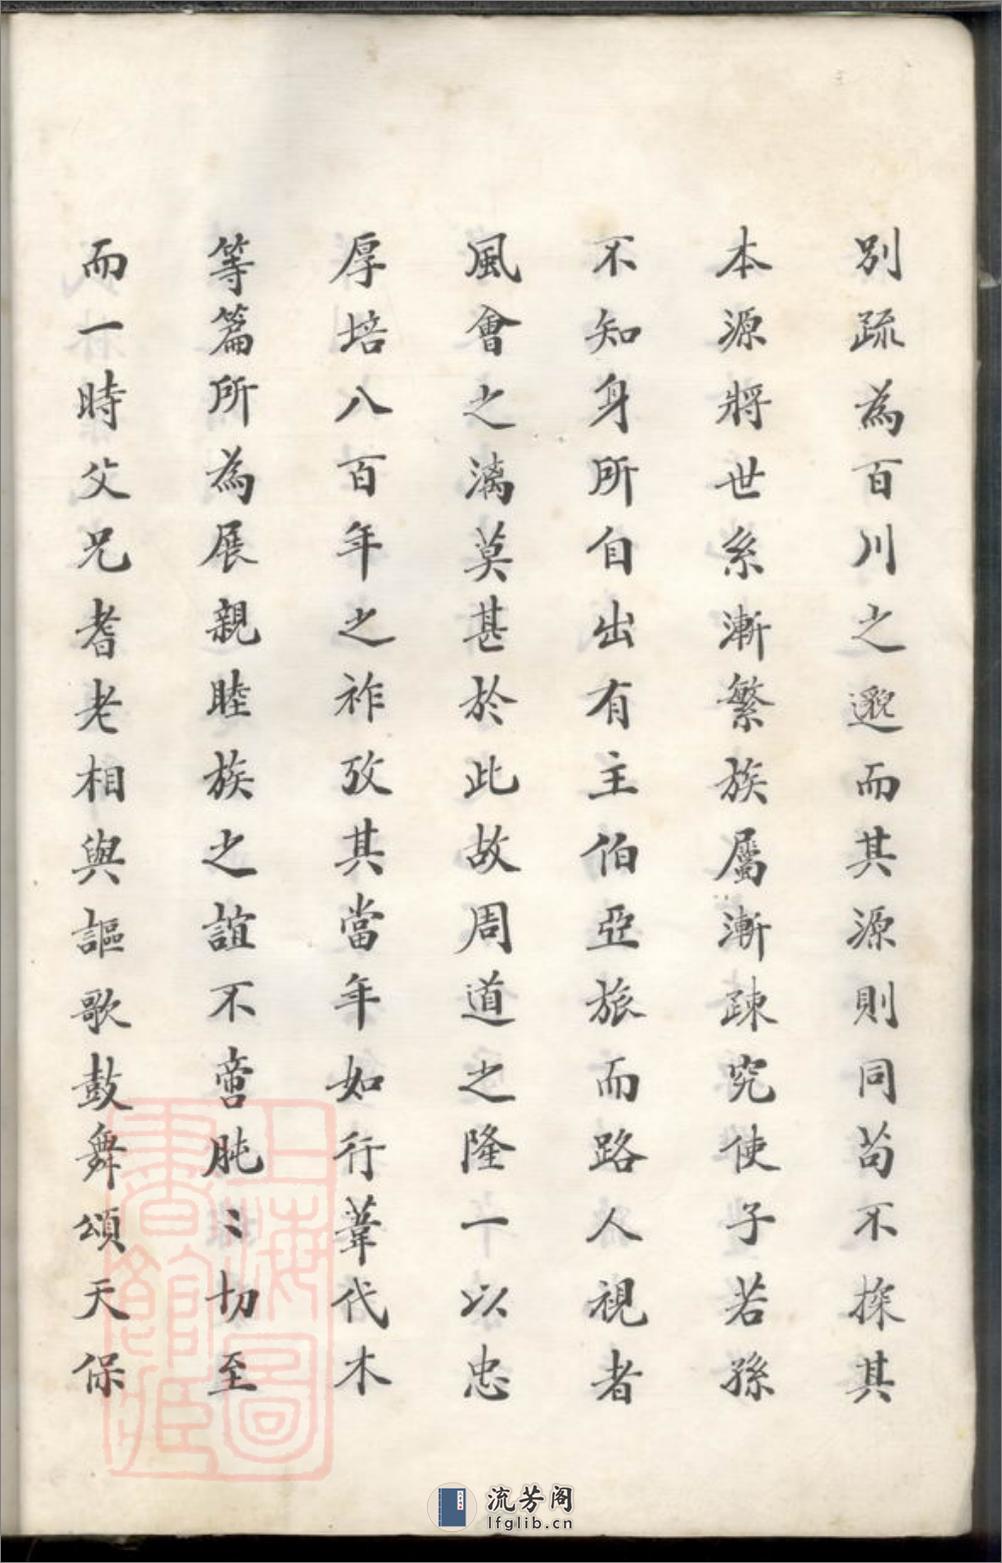 別疏為百川之邈而其源則同茍不探其
本源將世系漸繁族屬漸疎究使子若孫
不知身所自出有主伯亞旅而路人視者
風會之漓莫甚於此故周道之隆一以忠
厚培八百年之祚攷其當年如行葦代木
等篇所為展親睦族之誼不啻肫〻切至
而一時父兄耆老相與謳歌鼓舞頌天保
上海圖書館藏
流芳阁
lfglib.cn